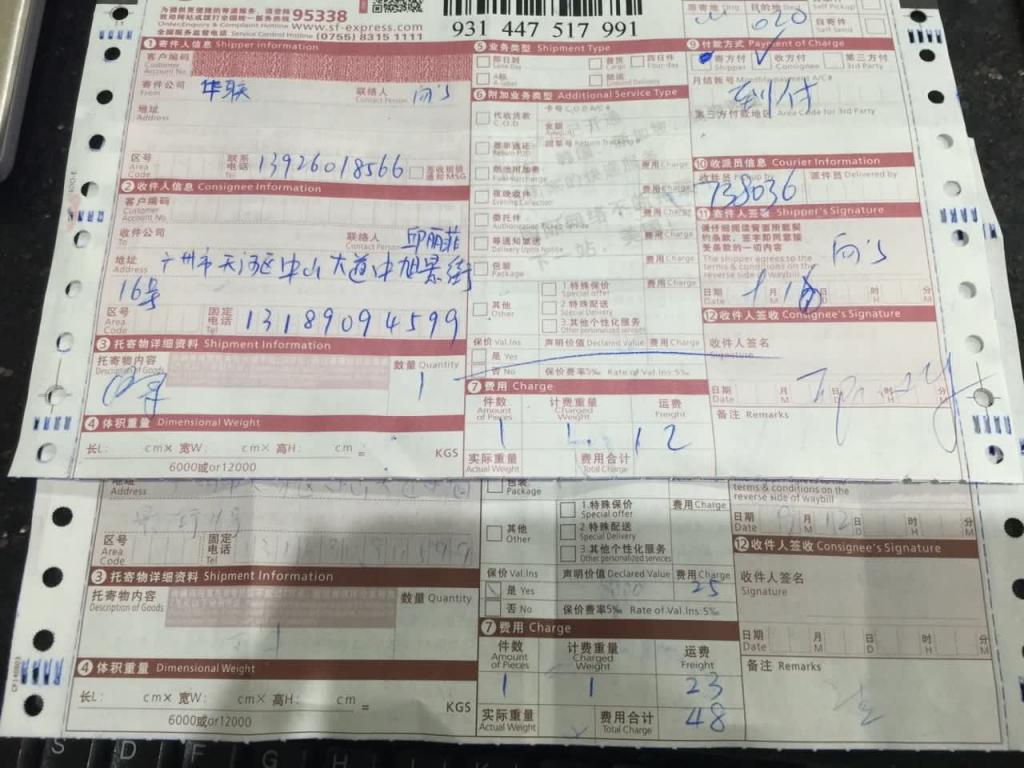 95338
www.sf-express.com
Order,Enquiry & Complaint Hotline
全国服务监督电话 Service Control Hotline (0755) 8315 1111
931 447 517 991
020
自寄件
Self Send
1 寄件人信息 Shipper Information
客户编码
Customer
Account No.
寄件公司
From
华联
联络人
Contact Person
向's
地址
Address
区号
Area
Code
联系
电话
Tel
13926018566
2 收件人信息 Consignee Information
客户编码
Customer
Account No.
收件公司
To
联络人
Contact Person
邱丽菲
地址
Address
广州市天河区中山大道中旭景街
16号
区号
Area
Code
固定
电话
Tel
13189094599
3 托寄物详细资料 Shipment Information
托寄物内容
Description of Goods
数量 Quantity
1
4 体积重量 Dimensional Weight
长L: cm× 宽W: cm× 高H: cm =
KGS
6000或or12000
5 业务类型 Shipment Type
即日到
四日件
Four-day
6 附加业务类型 Additional Service Type
代收货款
C.O.D
卡号 C.O.D A/C#
费用Charge
夜晚收件
Evening Collection
费用Charge
委托件
等通知派送
Delivery Upon Notice
包装
Package
费用Charge
其他
Other
1.特殊保价
Special offer
费用Charge
2.特殊配送
Special Delivery
3.其他个性化服务
Other personalized services
保价 Val.Ins
声明价值 Declared Value
费用Charge
是 Yes
否 No
保价费率5‰ Rate of Val.Ins:5‰
7 费用 Charge
件数
Amount
of Pieces
计费重量
Charged
Weight
运费
Freight
1
12
实际重量
Actual Weight
费用合计
Total Charge
9 付款方式 Payment of Charge
寄方付
Shipper
收方付
Consignee
第三方付
3rd Party
月结帐号 Monthly Payment A/C#
到付
第三方付款地区 Area Code for 3rd Party
10 收派员信息 Courier Information
738036
派件员 Delivered by
11 寄件人签署 Shipper's Signature
请仔细阅读背面所载契
约条款，签字即同意接
受条款的一切内容
The shipper agrees to the
terms & conditions on the
reverse side of waybill
向's
日期
Date
月
M
日
D
时
H
分
M
12 收件人签收 Consignee's Signature
收件人签名
Signature
日期
Date
月
M
日
D
时
H
分
M
备注 Remarks
地址
Address
区号
Area
Code
固定
电话
Tel
3 托寄物详细资料 Shipment Information
托寄物内容
Description of Goods
数量 Quantity
4 体积重量 Dimensional Weight
长L: cm× 宽W: cm× 高H: cm =
KGS
6000或or12000
包装
Package
其他
Other
1.特殊保价
Special offer
费用Charge
2.特殊配送
Special Delivery
3.其他个性化服务
Other personalized services
保价 Val.Ins
声明价值 Declared Value
费用Charge
是 Yes
25
否 No
保价费率5‰ Rate of Val.Ins:5‰
7 费用 Charge
件数
Amount
of Pieces
计费重量
Charged
Weight
运费
Freight
1
1
23
实际重量
Actual Weight
费用合计
Total Charge
48
terms & conditions on the
reverse side of waybill
日期
Date
9
月
M
12
日
D
时
H
分
M
12 收件人签收 Consignee's Signature
收件人签名
Signature
日期
Date
月
M
日
D
时
H
分
M
备注 Remarks
S D F G H